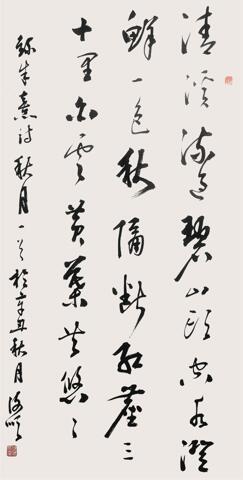 清溪流過碧山頭空水澄
鮮一色秋隔斷紅塵三
十里白雲黃葉共悠々
錄朱熹詩秋月一首於辛丑秋月